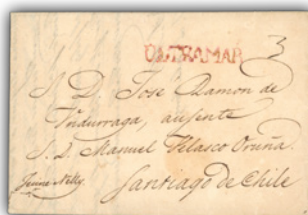 ULTRAMAR
3
S. D. Jose Ramon de
Undurraga, ausente
S. D. Manuel Velasco Oruña.
Jeune Nelly
Santiago de Chile